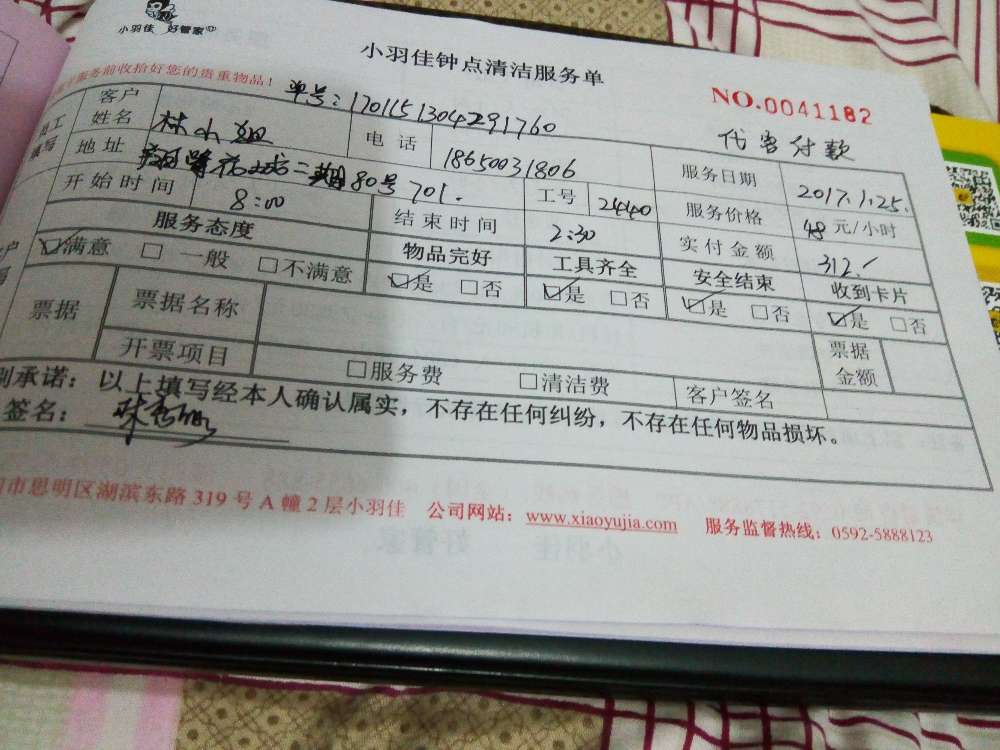 小羽佳 好管家
小羽佳钟点清洁服务单
服务前收拾好您的贵重物品!
单号:1701151304291760
NO.0041182
代客付款
客户姓名 林小姐 电话 18650031806 服务日期 2017.1.25.
填写 地址 二期80号701. 工号 24440 服务价格 48元/小时
开始时间 8:00 结束时间 2:30 实付金额 312.
服务态度 物品完好 工具齐全 安全结束 收到卡片
☑满意 □一般 □不满意 ☑是 □否 ☑是 □否 ☑是 □否 ☑是 □否
票据 票据名称 票据金额
开票项目 □服务费 □清洁费 客户签名
承诺:以上填写经本人确认属实,不存在任何纠纷,不存在任何物品损坏。
签名:
市思明区湖滨东路319号A幢2层小羽佳 公司网站:www.xiaoyujia.com 服务监督热线:0592-5888123